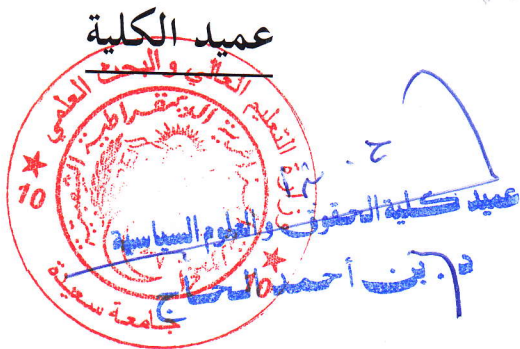 عميد الكلية
وزارة التعليم العالي والبحث العلمي
الجمهورية الجزائرية الديمقراطية الشعبية
10
جامعة سعيدة
عميد كلية الحقوق و العلوم السياسية
د. بن أحمد الحاج